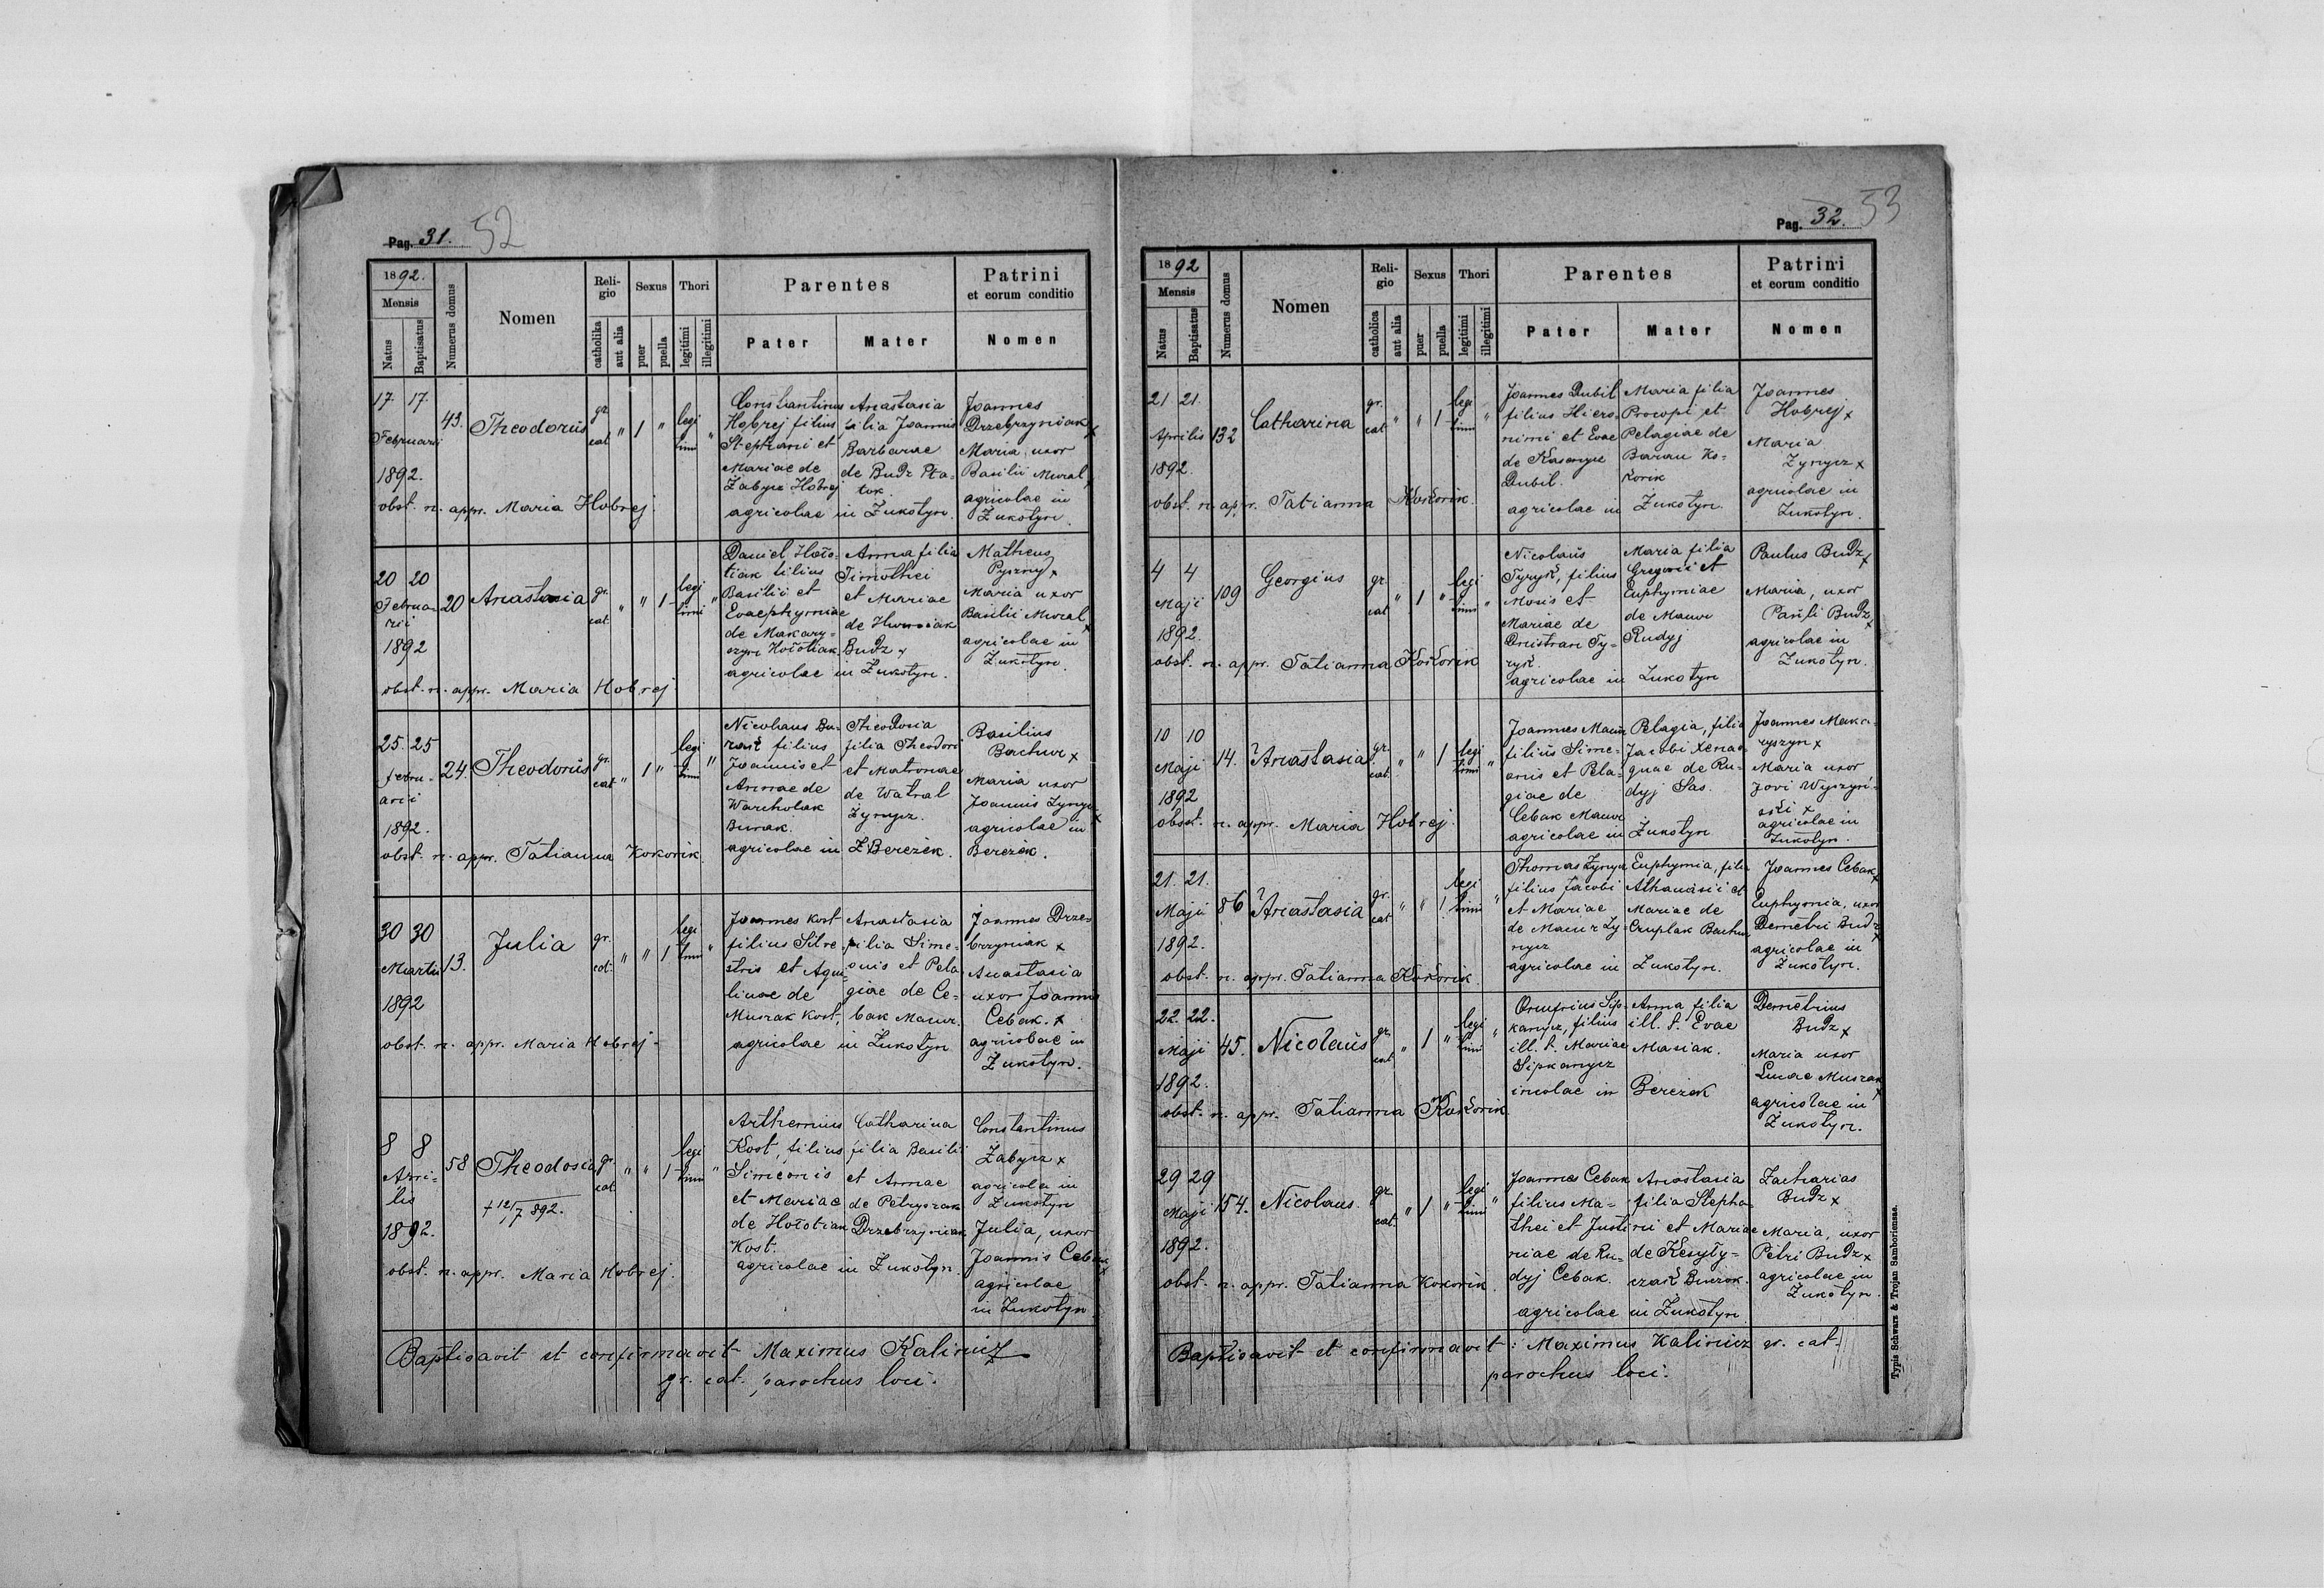 Pag. 31. 52
1892.
Mensis
Natus
Baptisatus
Numerus domus
Nomen
Religio
catholika
aut alia
Sexus
puer
puella
Thori
legitimi
illegitimi
Parentes
Pater
Mater
Patrini
et eorum conditio
Nomen
17. 17.
Februarii
1892.
43.
Theodorus
gr.
cat
"
1
"
legi
timi
"
Constantinus
Hobrej filius
Stephani et
Mariae de
Żabycz Hobrej
Anastasia
filia Joannis
Barbarae
de Budz Pta-
tok.
agricolae in Żukotyn.
Joannes
Drzebrzyniak x
Maria uxor
Basilii Mural x
agricolae in
Żukotyn.
obst. n. appr. Maria Hobrej.
20 20
Februa-
rii
1892
20
Anastasia
gr.
cat
"
"
1
legi
timi
"
Daniel Hoło-
tiak filius
Basilii et
Evaephymiae
de Makary-
czyn Hołotiak
Anna filia
Timothei
et Mariae
de
Budz x
agricolae in Żukotyn.
Matheus
Pyszny x
Maria uxor
Basilii Mural x
agricolae in
Żukotyn.
obst. n. appr. Maria Hobrej.
25. 25
Febru-
arii
1892.
24.
Theodorus
gr.
cat
"
1
"
legi
timi
"
Nicolaus Bu-
rak filius
Joannis et
Annae de
Warcholak
Burak.
Theodosia
filia Theodori
et Matronae
de Watral
Zynycz.
agricolae in Ż Bereżek.
Basilius
Bachur x
Maria uxor
Joannis Zynycz x
agricolae in
Bereżek.
obst. n. appr. Tatianna Kokorik.
30 30
Martii
1892
13.
Julia
gr.
cat.
"
"
1
legi
timi
"
Joannes Kost
filius Silve-
stris et Aqui-
linae de
Muszak Kost,
Anastasia
filia Sime-
onis et Pela
giae de Ce-
bak Mazur.
agricolae in Żukotyn
Joannes Drze-
brzyniak x
Anastasia
uxor Joannis
Cebak. x
agricolae in
Żukotyn.
obst. n. appr. Maria Hobrej.
8 8
Apri-
lis
1892.
58
Theodosia
+ 12/7 892.
gr.
cat
"
"
1
legi
timi
"
Arthemius
Kost, filius
Simeonis
et Mariae
de Hołotiak
Kost.
Catharina
filia Basilii
et Annae
de Petryszak
Drzebrzyniak
agricolae in Żukotyn.
Constantinus
Żabycz x
agricola in
Żukotyn
Julia, uxor
Joannis Cebak x
agricolae
in Żukotyn
obst. n. appr. Maria Hobrej.
Baptisavit et confirmavit Maximus Kalinicz
gr. cat. parochus loci.
Pag. 32. 53
1892
Mensis
Natus
Baptisatus
Numerus domus
Nomen
Religio
catholica
aut alia
Sexus
puer
puella
Thori
legitimi
illegitimi
Parentes
Pater
Mater
Patrini
et eorum conditio
Nomen
21 21.
Aprilis
1892.
132
Catharina
gr.
cat
"
"
1
legi
timi
"
Joannes Dubil
filius Hiero-
nimi et Evae
de Kasanycz
Dubil.
Maria filia
Procopi et
Pelagiae de
Baran Ko-
korik
agricolae in Żukotyn.
Joannes
Hobrej x
Maria
Zynycz x
agricolae in
Żukotyn.
obst. n. appr. Tatianna Kokorik.
4 4
Maji
1892.
109
Georgius
gr.
cat
"
1
"
legi
timi
"
Nicolaus
Tyryk, filius
Mosis et
Mariae de
Dnistran Ty-
ryk.
Maria filia
Gregorii et
Euphymiae
de Mauur
Rudyj
agricolae in Żukotyn
Paulus Budz x
Maria, uxor
Pauli Budz x
agricolae in
Żukotyn.
obst. n. appr. Tatianna Kokorik
10 10
Maji
1892
14.
Anastasia
gr.
cat.
"
"
1
legi
timi
"
Joannes Mazur
filius Sime-
onis et Pela-
giae de
Cebak Mazur
Pelagia, filia
Jacobi Xena-
quae de Ru-
dyj Sas.
agricolae in Żukotyn
Joannes Maka-
ryszyn x
Maria uxor
Jovi Wyszyń-
ski x
agricolae in
Żukotyn.
obst. n. appr. Maria Hobrej.
21. 21.
Maji
1892.
86
Anastasia
gr.
cat
"
"
1
legi
timi
"
Thomas Zynycz
filius Jacobi
et Mariae
de Mazur Zy-
nycz
Euphymia, filia
Athanasii et
Mariae de
Czuplak Bachur
agricolae in Żukotyn.
Joannes Cebak x
Euphymia, uxor
Demetri Budz x
agricolae in
Żukotyn.
obst. n. appr. Tatianna Kokorik
22. 22.
Maji
1892.
45.
Nicolaus
gr.
cat
"
1
"
legi
timi
"
Onufrius Sip-
kanycz, filius
ill. t. Mariae
Sipkanycz
Anna filia
ill. t. Evae
Masiak.
incolae in Bereżek
Demetrius
Budz x
Maria uxor
Lucae Muszak x
agricolae in
Żukotyn.
obst. n. appr. Tatianna Kokorik.
29 29
Maji
1892.
154.
Nicolaus.
gr.
cat.
"
1
"
legi
timi
"
Joannes Cebak
filius Ma-
thei et Justi
niae de Ru-
dyj Cebak.
Anastasia
filia Stepha-
ni et Mariae
de Kesyły-
czak Burak.
agricolae in Żukotyn
Zacharias
Budz x
Maria, uxor
Petri Budz x
agricolae in
Żukotyn.
obst. n. appr. Tatianna Kokorik.
Baptisavit et confirmavit: Maximus Kalinicz gr. cat.
parochus loci.
Typis Schwarz & Trojan Samboriensae.